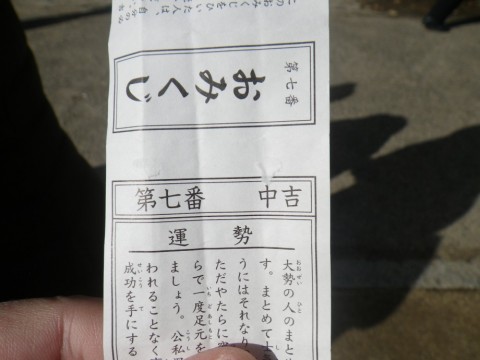 のおみくじをひいた人は、
自分の
第七番
おみくじ
第七番 中吉
運勢
大勢の人のまと
す。まとめて
うにはそれなり
ただやたらに
らで一度足元を
ましょう。公私
われることなく
成功を手にする